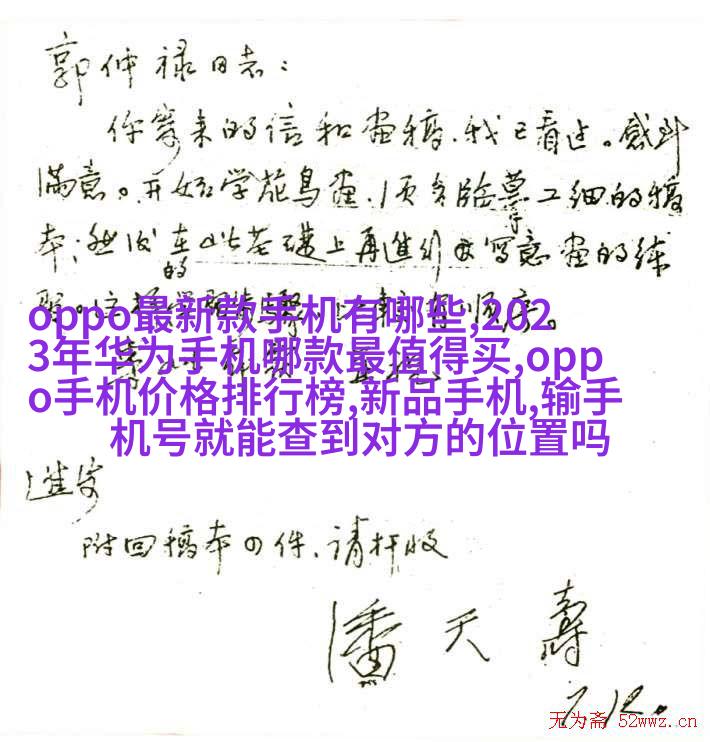 郭仲禄同志：
你寄来的信和画稿，我已看过。感到
满意。开始学花鸟画，须多临摹工细的稿
本；然后在此基础上再进行写意画的练
的
oppo最新款手机有哪些,202
3年华为手机哪款最值得买,opp
o手机价格排行榜,新品手机,输手
机号就能查到对方的位置吗
进安
附回稿本四件，请检收
潘天寿
7.12.
无为斋 52wwz.cn